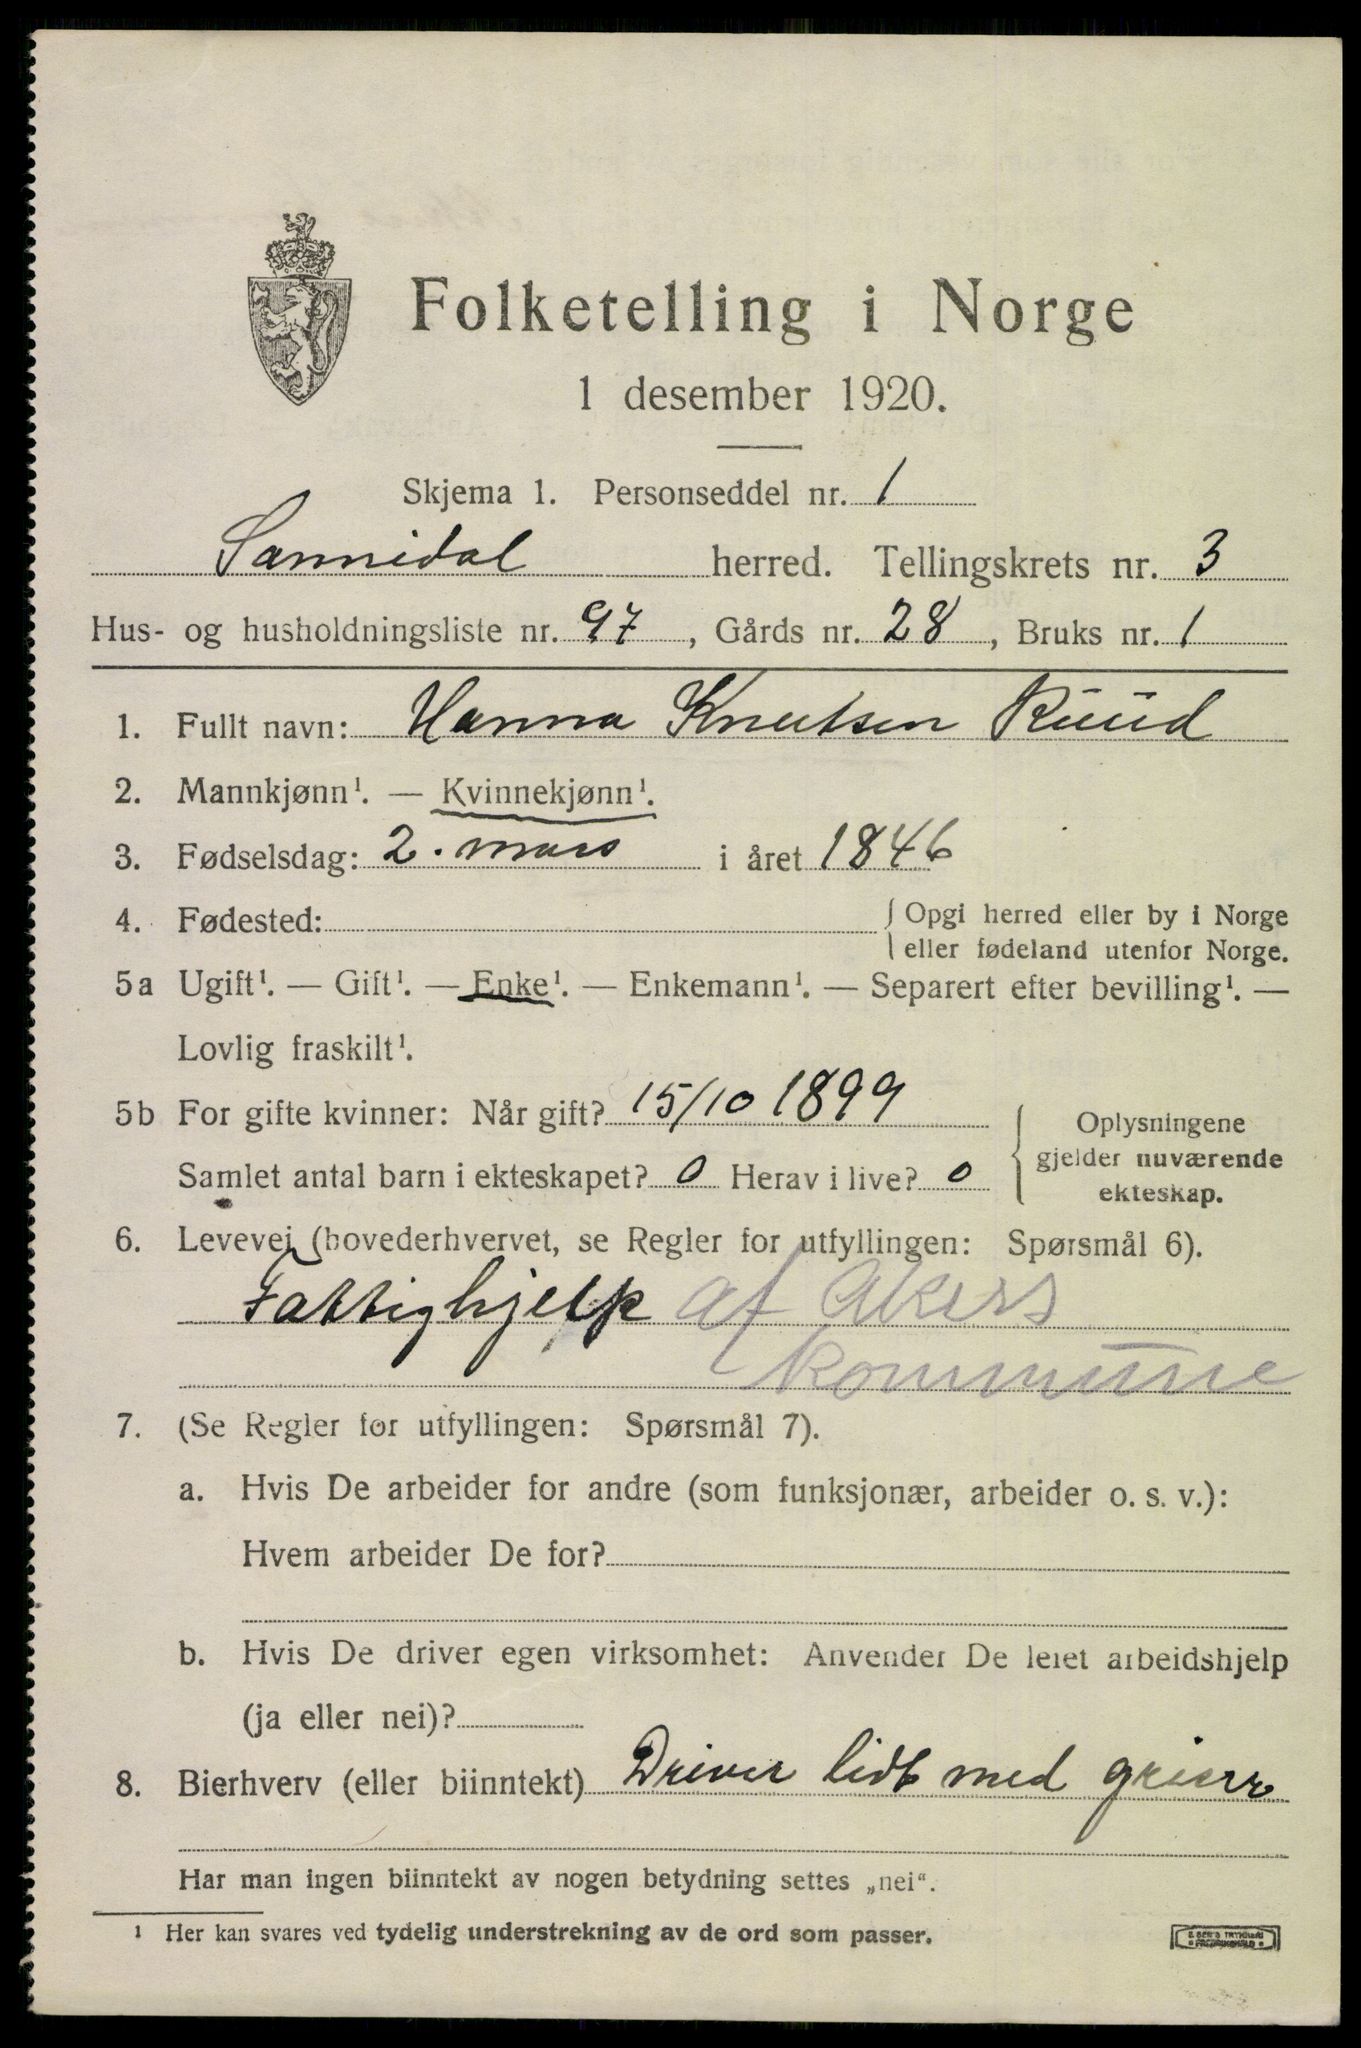 Folketelling i Norge
1 desember 1920.
Skjema 1. Personseddel nr. 1
Sannidal herred. Tellingskrets nr. 3
Hus- og husholdningsliste nr. 97, Gårds nr. 28, Bruks nr. 1
1. Fullt navn: Hanna Knutsen Ruud
2. Mannkjønn¹. — Kvinnekjønn¹.
3. Fødselsdag: 2. mars i året 1846
4. Fødested: { Opgi herred eller by i Norge
eller fødeland utenfor Norge.
5a Ugift¹. — Gift¹. — Enke¹. — Enkemann¹. — Separert efter bevilling¹. —
Lovlig fraskilt¹.
5b For gifte kvinner: Når gift? 15/10 1899
Samlet antal barn i ekteskapet? 0 Herav i live? 0
Oplysningene
gjelder nuværende
ekteskap.
6. Levevei (hovederhvervet, se Regler for utfyllingen: Spørsmål 6).
Fattighjelp af Akers
kommune
7. (Se Regler for utfyllingen: Spørsmål 7).
a. Hvis De arbeider for andre (som funksjonær, arbeider o. s. v.):
Hvem arbeider De for?
b. Hvis De driver egen virksomhet: Anvender De leiet arbeidshjelp
(ja eller nei)?
8. Bierhverv (eller biinntekt) Driver lidt med
Har man ingen biinntekt av nogen betydning settes „nei“.
¹ Her kan svares ved tydelig understrekning av de ord som passer.